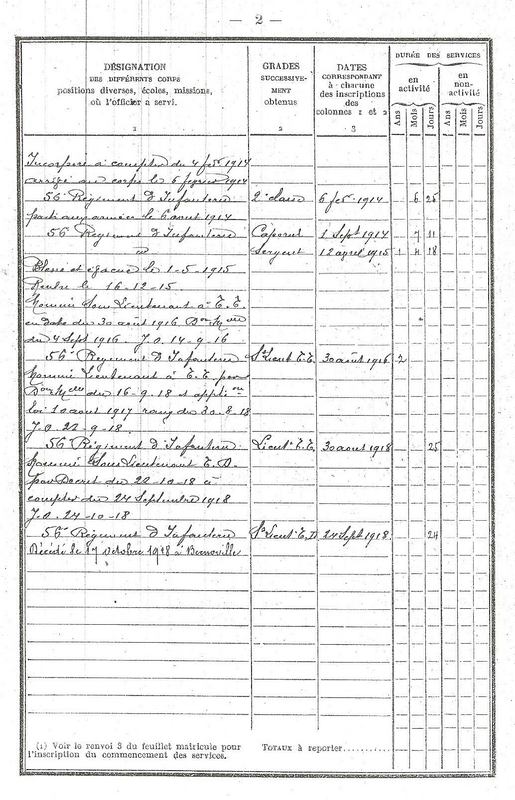 — 2 —
DÉSIGNATION
DES DIFFÉRENTS CORPS
positions diverses, écoles, missions,
où l'officier a servi.
1
GRADES
SUCCESSIVE-
MENT
obtenus
2
DATES
CORRESPONDANT
à chacune
des inscriptions
des
colonnes 1 et 2
3
DURÉE DES SERVICES
en
activité
en
non-
activité
Ans
Mois
Jours
Ans
Mois
Jours
Incorporé à compter du 4 fév 1914
arrivé au corps le 6 février 1914
56e Régiment d'Infanterie 2e classe 6 fév. 1914 6 25
parti aux armées le 6 aout 1914
56e Régiment d'Infanterie Caporal 1 Septe 1914 7 11
id Sergent 12 avril 1915 1 4 18
Blessé et évacué le 1-5-1915
Rentré le 16-12-15
Nommé Sous Lieutenant à T.T.
en date du 30 août 1916 Don Melle
du 4 Sept 1916 J.O. 14-9-16
56e Régiment d'Infanterie S/Lieut T.T. 30 août 1916 2
Nommé Lieutenant à T.T. par
Don Melle du 16-9-18 et applion
loi 10 août 1917 rang du 30-8-18
J.O. 22-9-18.
56e Régiment d'Infanterie Lieutt T.T. 30 août 1918 25
Nommé Sous Lieutenant T.D.
par Décret du 22-10-18 à
compter du 24 Septembre 1918
J.O. 24-10-18
56e Régiment d'Infanterie S/Lieut T.D 24 Sept 1918. 24
Décédé le 17 Octobre 1918 à Bernoville
(1) Voir le renvoi 3 du feuillet matricule pour
l'inscription du commencement des services.
TOTAUX à reporter............